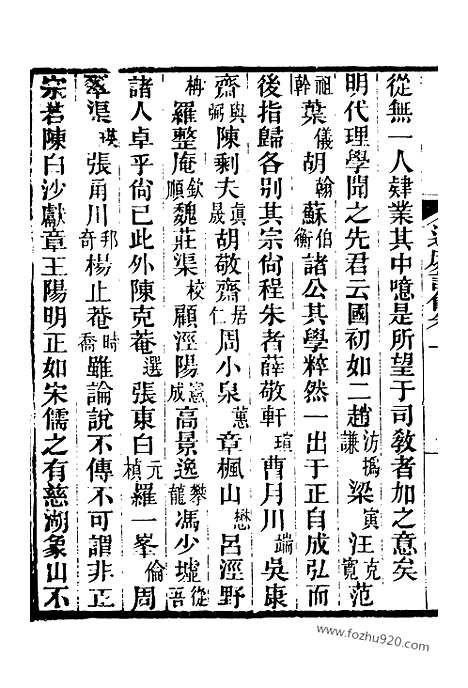 從無一人肄業其中噫是所望于司敎者加之意矣
明代理學聞之先君云國初如二趙汸撝謙梁寅汪克寬范
祖幹葉儀胡翰蘇伯衡諸公其學粹然一出于正自成弘而
後指歸各別其宗尙程朱者薛敬軒瑄曹月川端吳康
齋與弼陳剩夫眞晟胡敬齋居仁周小泉蕙章楓山懋呂涇野
柟羅整庵欽順魏莊渠校顧涇陽憲成高景逸攀龍馮少墟從吾
諸人卓乎尙已此外陳克菴選張東白元楨羅一峯倫周
翠渠瑛張甬川邦奇楊止菴時喬雖論說不傳不可謂非正
宗若陳白沙獻章王陽明正如宋儒之有慈湖象山不
www.fozhu920.com